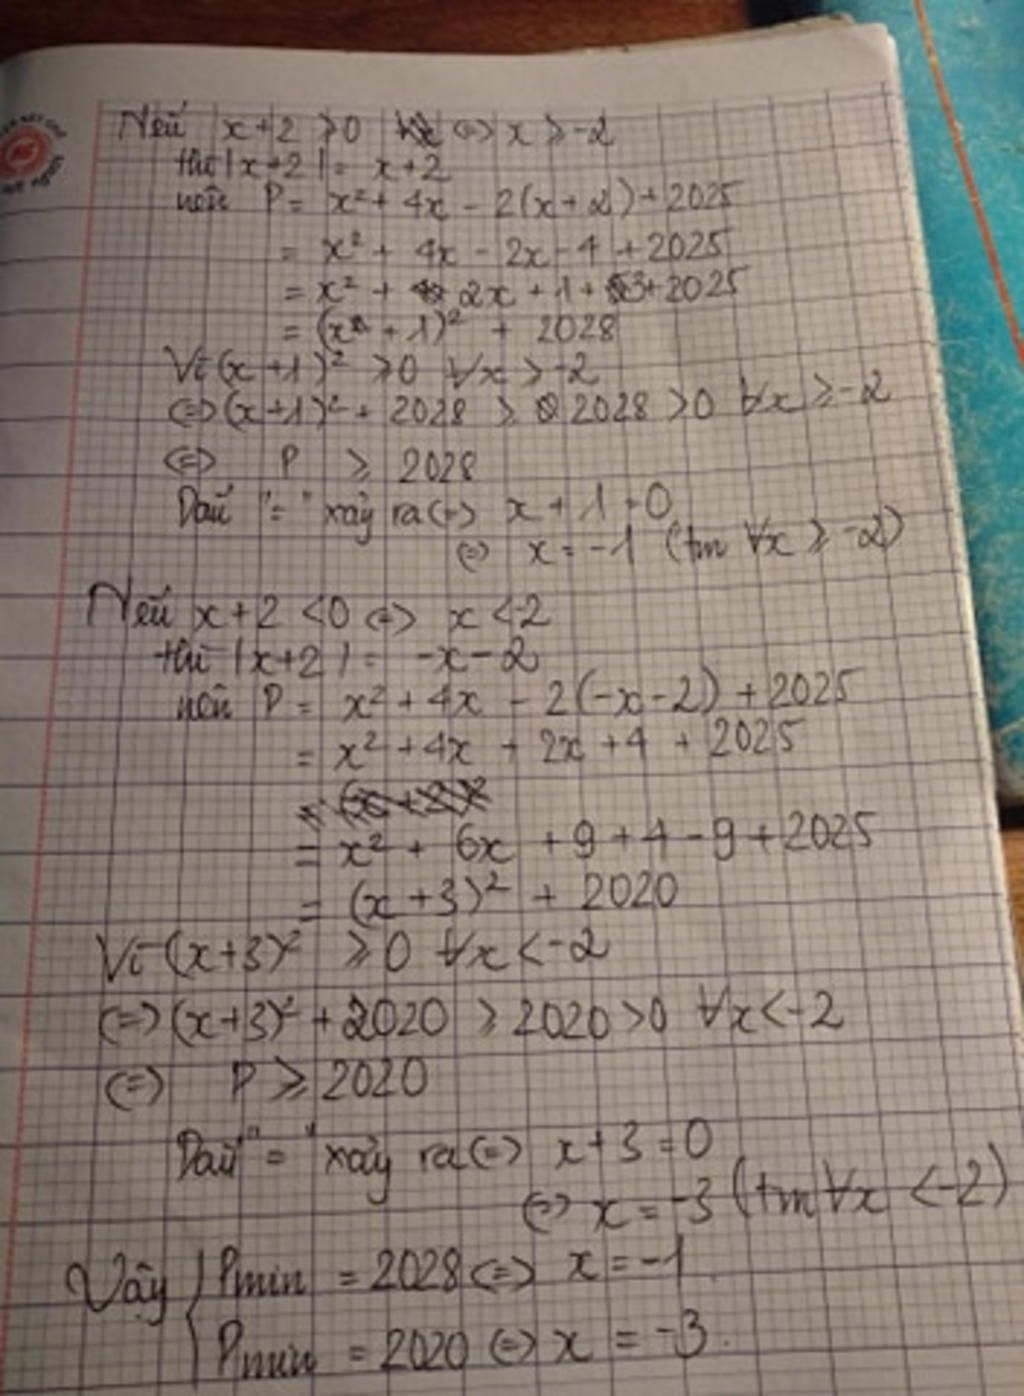 Nếu x+2 ⩾0 <=> x ⩾ -2
thì |x+2| = x+2
nên P = x² + 4x - 2(x+2) + 2025
= x² + 4x - 2x - 4 + 2025
= x² + 2x + 1 + 3 + 2025
= (x + 1)² + 2028
Vì (x+1)² ⩾0 ∀x ⩾ -2
<=> (x+1)² + 2028 ⩾ 2028 >0 ∀x ⩾ -2
<=> P ⩾ 2028
Dấu "=" xảy ra <=> x + 1 = 0
<=> x = -1 (tm ∀x ⩾ -2)
Nếu x+2 <0 <=> x < -2
thì |x+2| = -x-2
nên P = x² + 4x - 2(-x-2) + 2025
= x² + 4x + 2x + 4 + 2025
= x² + 6x + 9 + 4 - 9 + 2025
= (x+3)² + 2020
Vì (x+3)² ⩾0 ∀x < -2
<=> (x+3)² + 2020 ⩾ 2020 >0 ∀x < -2
<=> P ⩾ 2020
Dấu "=" xảy ra <=> x+3 = 0
<=> x = -3 (tm ∀x < -2)
Vậy { Pmin = 2028 <=> x = -1
Pmin = 2020 <=> x = -3.